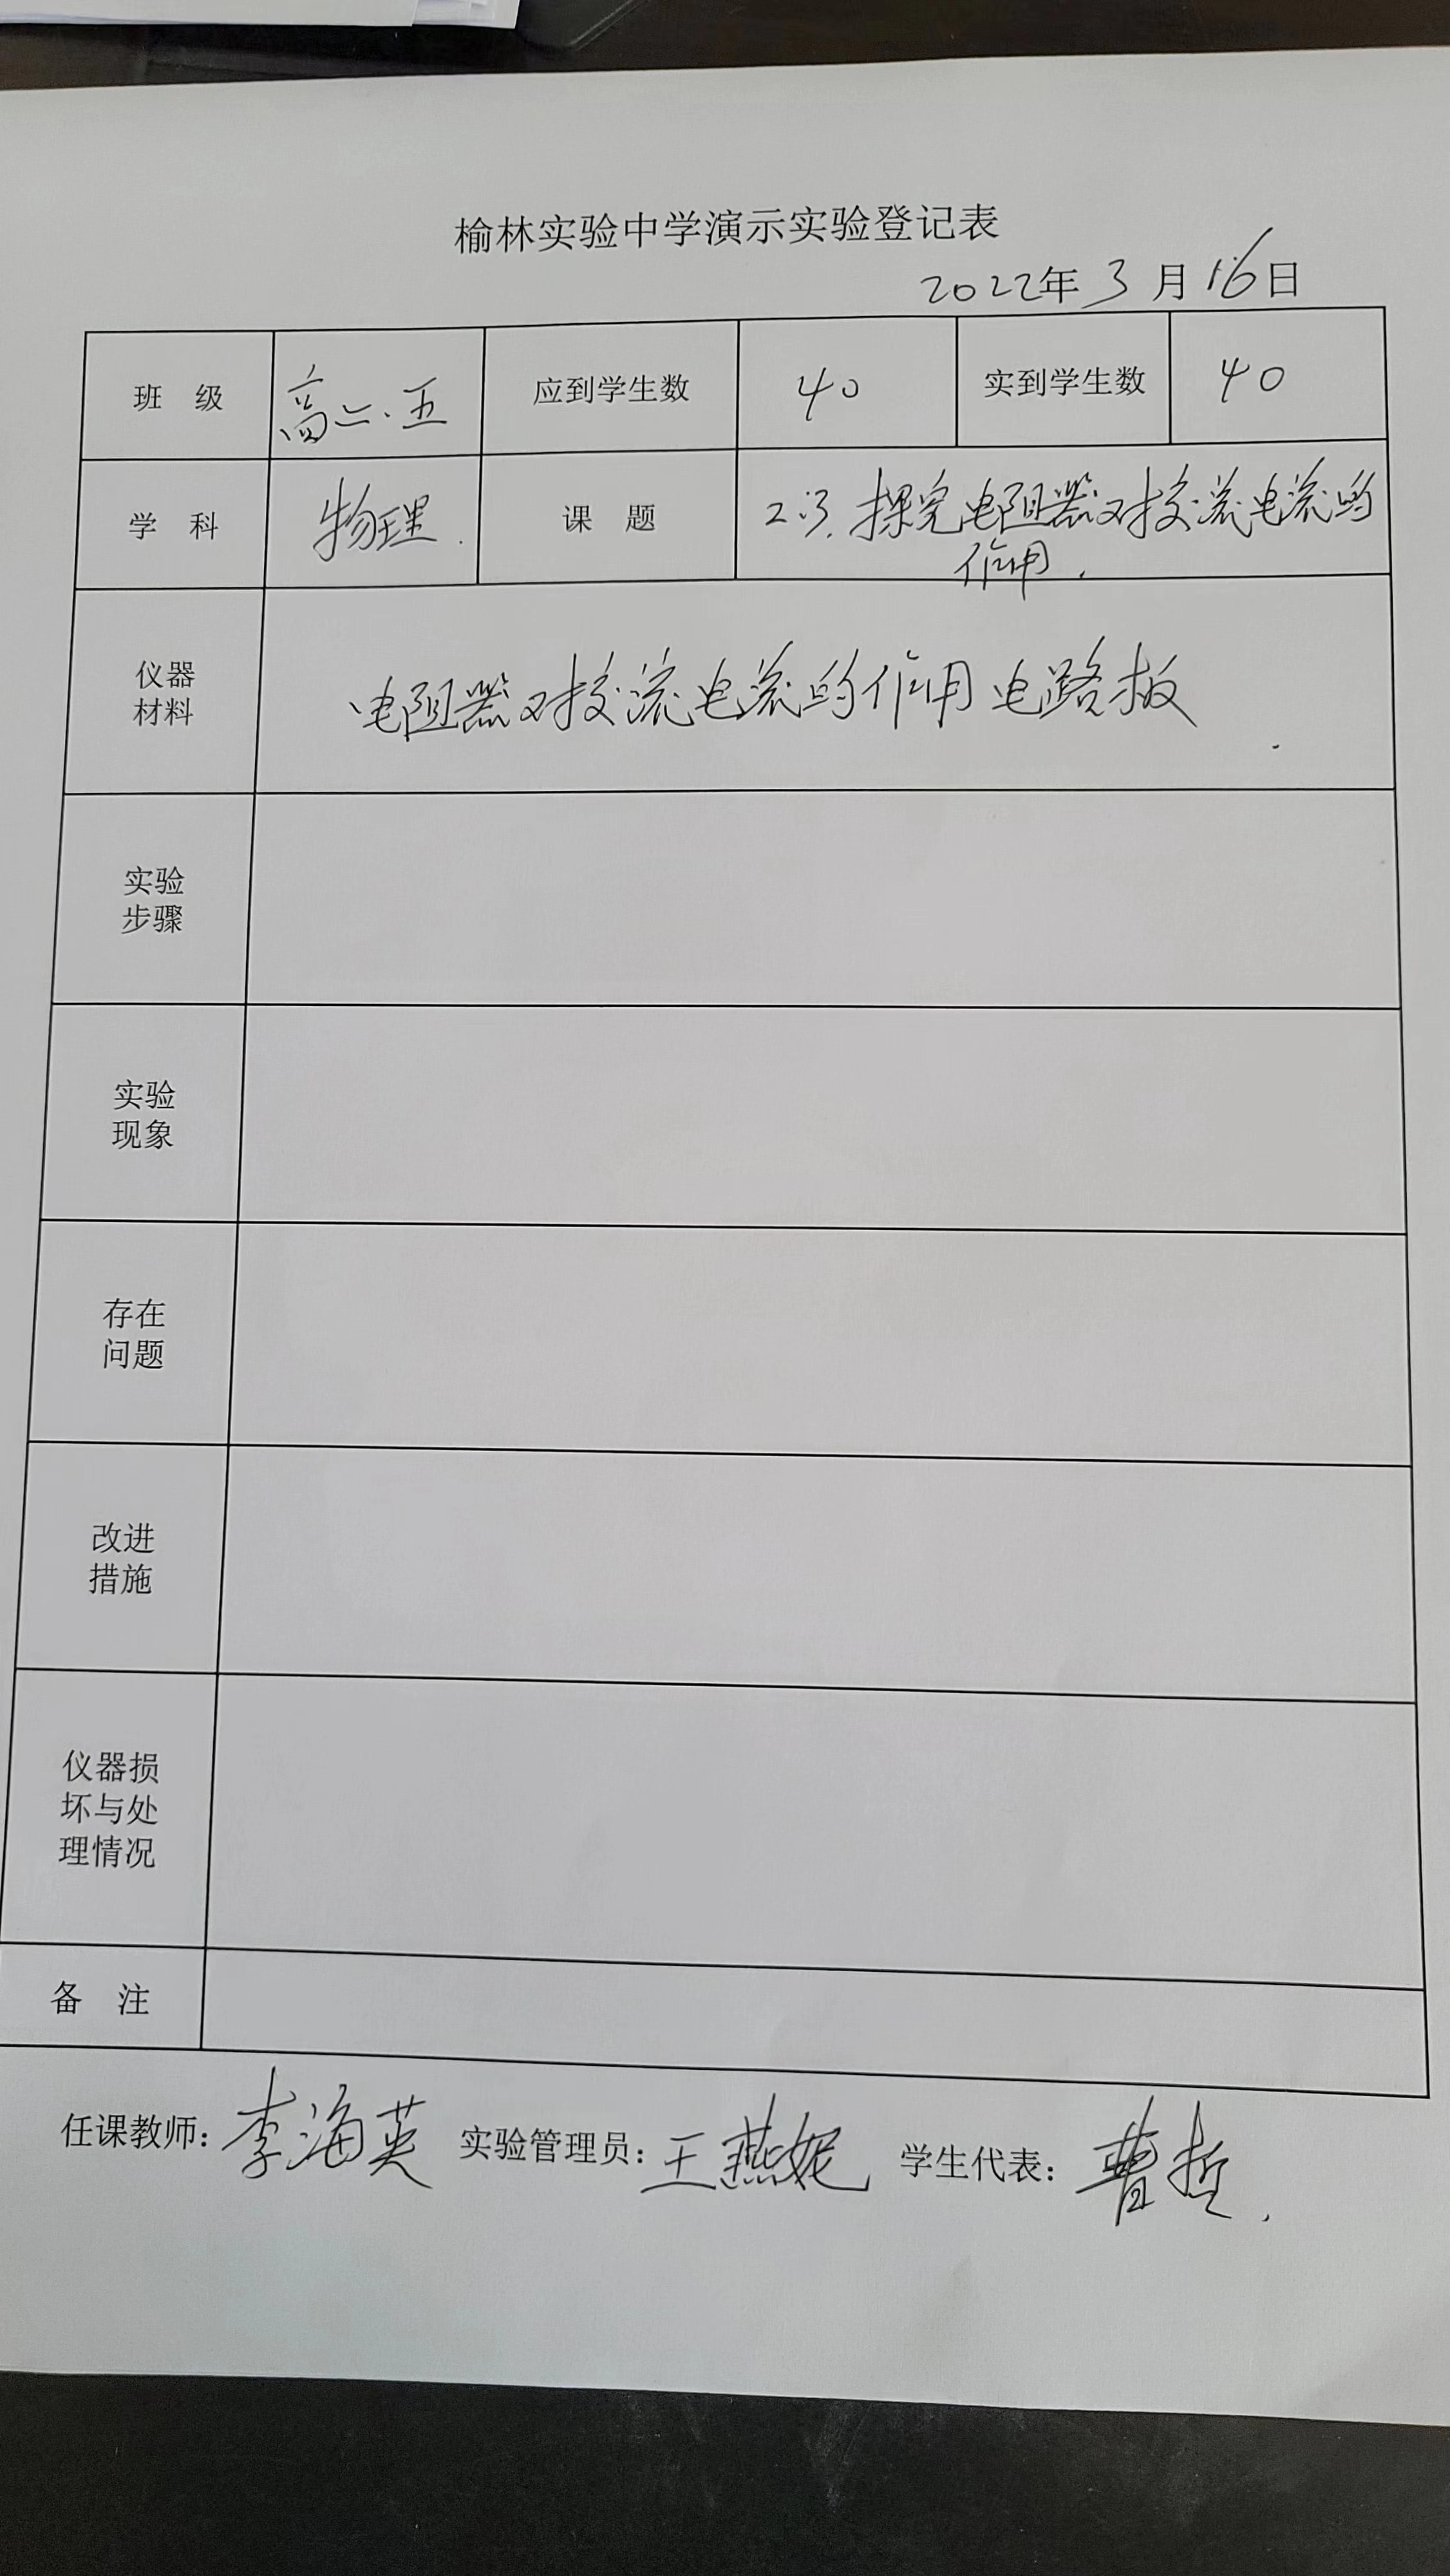 榆林实验中学演示实验登记表
2022年3月16日
班 级 高二.五 应到学生数 40 实到学生数 40
学 科 物理. 课 题 2.3. 探究电阻器对交流电流的
作用.
仪器
材料
电阻器对交流电流的作用电路板.
实验
步骤
实验
现象
存在
问题
改进
措施
仪器损
坏与处
理情况
备 注
任课教师: 李海英 实验管理员: 王燕妮 学生代表: 曹哲.